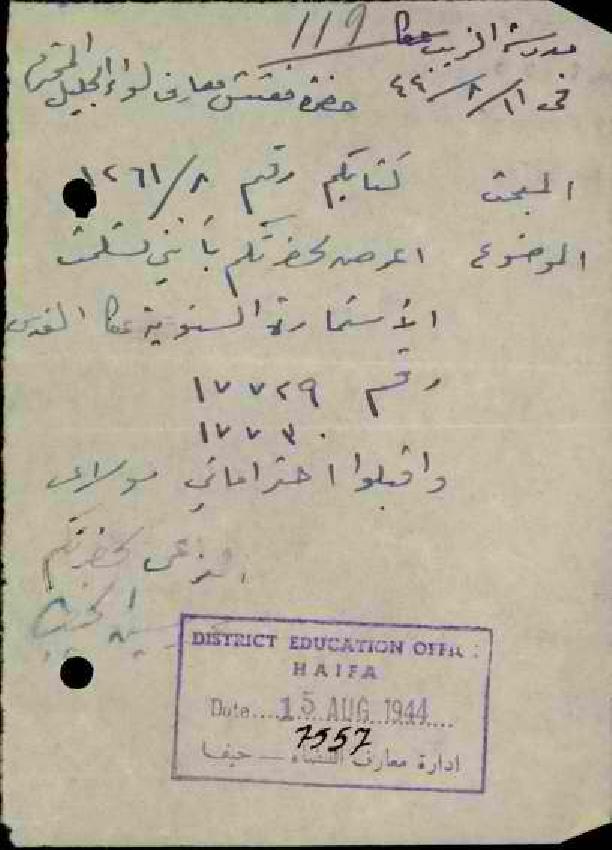 119
مدرسة الزيب عكا
في ١١/٨/٤٤
حضرة مفتش معارف لواء الجليل المحترم
المبحث كتابكم رقم ١٢٦١/٨
الموضوع اعرض لحضرتكم بأنني تسلمت
الاستمارة السنوية
رقم ١٧٧٢٩
١٧٧٣٠
واقبلوا احتراماتي مولاي
لحضرتكم
DISTRICT EDUCATION OFFICE
HAIFA
Date.... 15 AUG 1944....
7557
ادارة معارف اللواء — حيفا